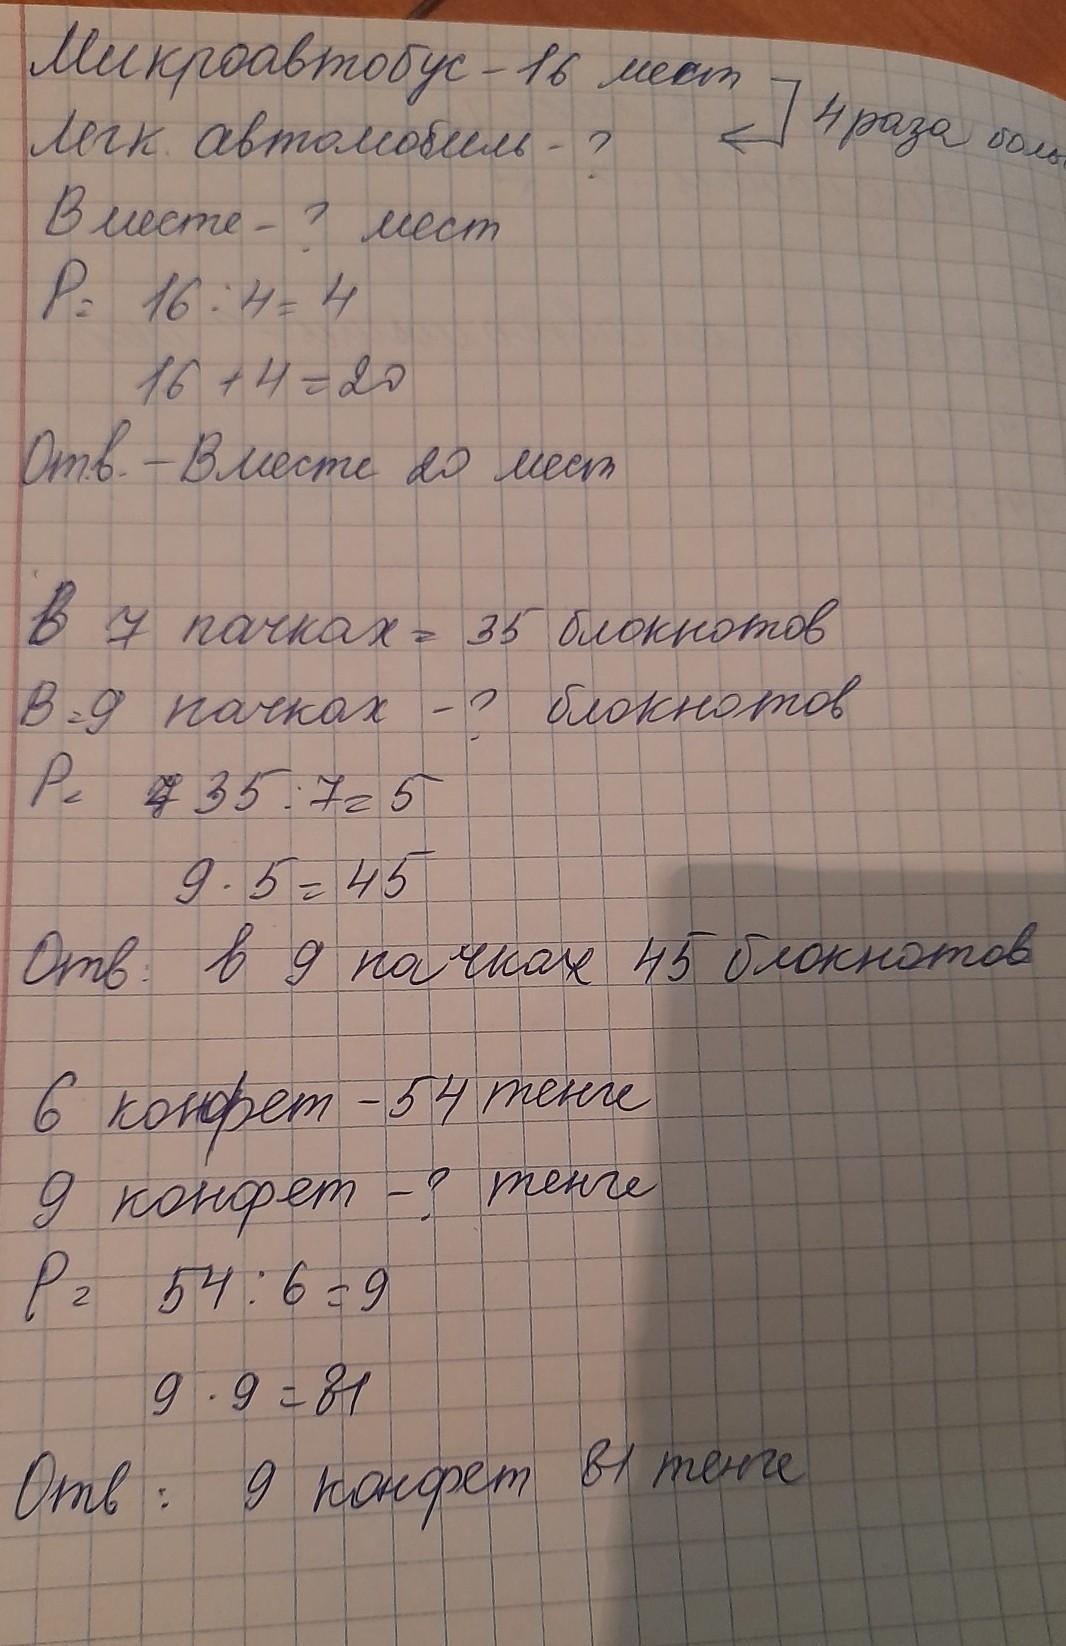 Микроавтобус - 16 мест
4 раза боль
Легк. автомобиль - ?
Вместе - ? мест
Р= 16 : 4 = 4
16 + 4 = 20
Отв. - Вместе 20 мест
В 7 пачках = 35 блокнотов
В = 9 пачках - ? блокнотов
Р= 35 : 7 = 5
9 · 5 = 45
Отв: в 9 пачках 45 блокнотов
6 конфет - 54 тенге
9 конфет - ? тенге
Р= 54 : 6 = 9
9 · 9 = 81
Отв : 9 конфет 81 тенге